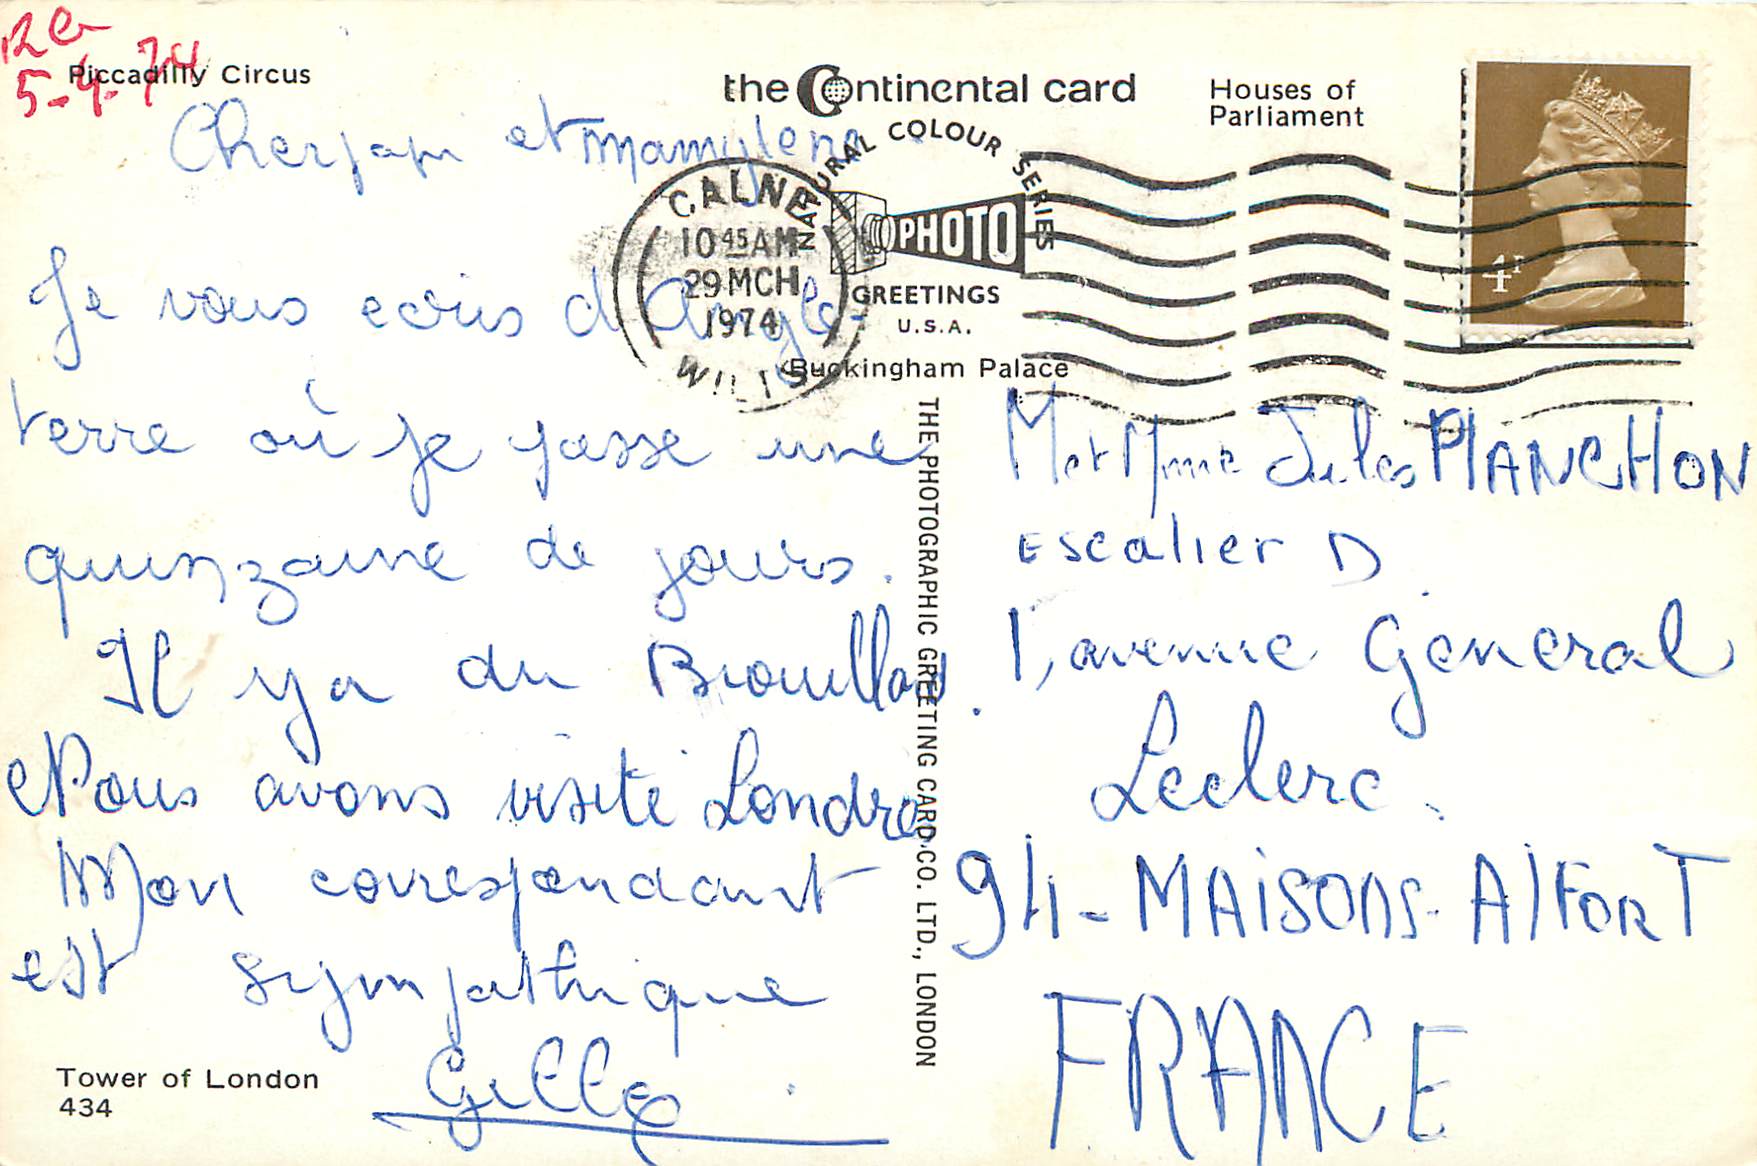 Re
5-4-74
Piccadilly Circus
the Continental card
NATURAL COLOUR SERIES
PHOTO
GREETINGS
U.S.A.
Houses of
Parliament
Buckingham Palace
CALNE
10 45 AM
29 MCH
1974
WILTS
4P
Cher papi et mamylene
Je vous ecris d'Angle-
terre où je passe une
quinzaine de jours.
Il y a du Brouillard.
Nous avons visité Londres
Mon correspondant
est sympathique
Gilles
Tower of London
434
THE PHOTOGRAPHIC GREETING CARD CO. LTD., LONDON
M et Mme Jules PLANCHON
Escalier D
1, avenue Géneral
Leclerc.
94 - MAISONS-AlFORT
FRANCE